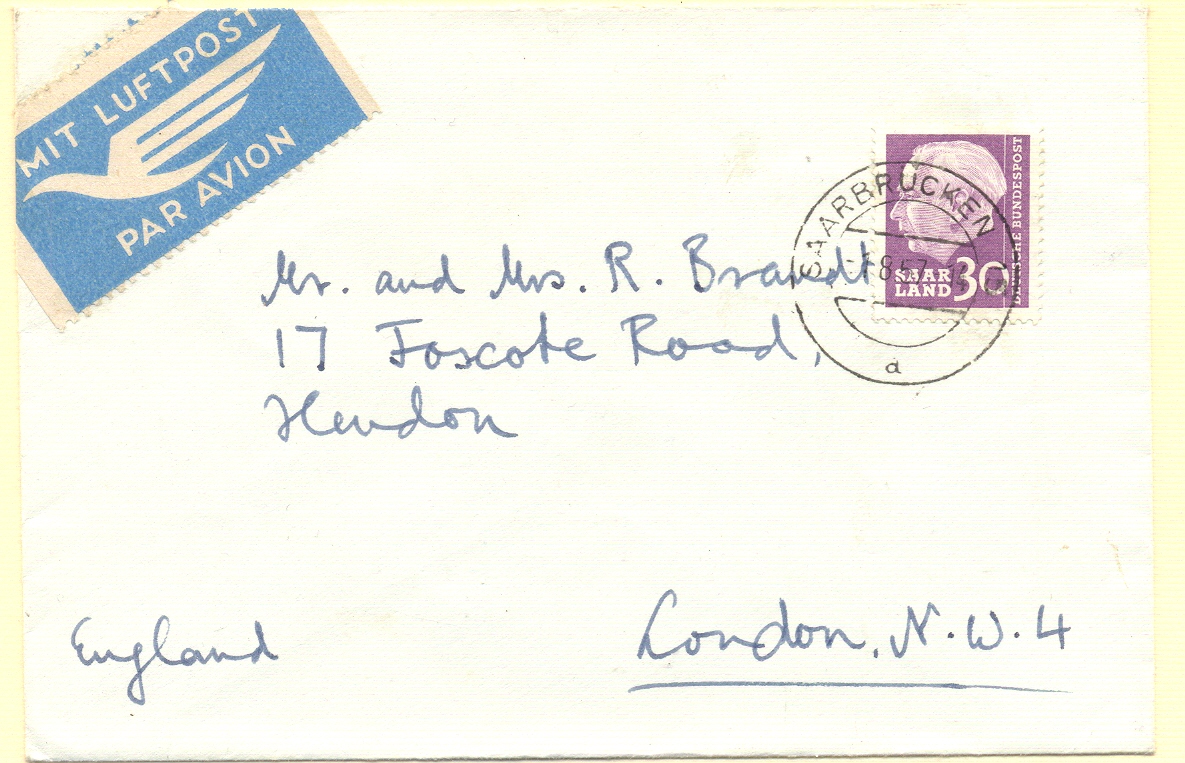 MIT LUFTPOST
PAR AVION
DEUTSCHE BUNDESPOST
SAARBRÜCKEN
SAAR
LAND 30
a
Mr. and Mrs. R. Brandt
17 Foscote Road,
Hendon
London, N.W.4
England